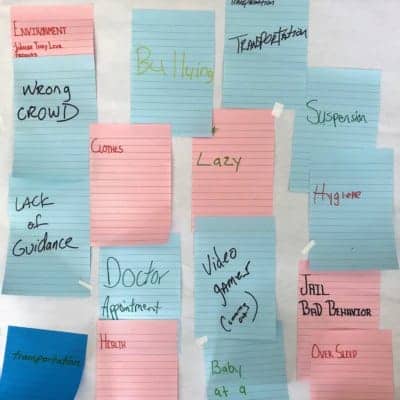 ENVIRONMENT
Where They Live
Bullying
Transportation
TRANSPORTATION
WRONG
CROWD
Suspension
CLOTHES
Lazy
Hygiene
LACK
of
Guidance
Doctor
Appointment
Video
games
JAIL
BAD BEHAVIOR
transportation
HEALTH
Baby
at a
OVER SLEEP